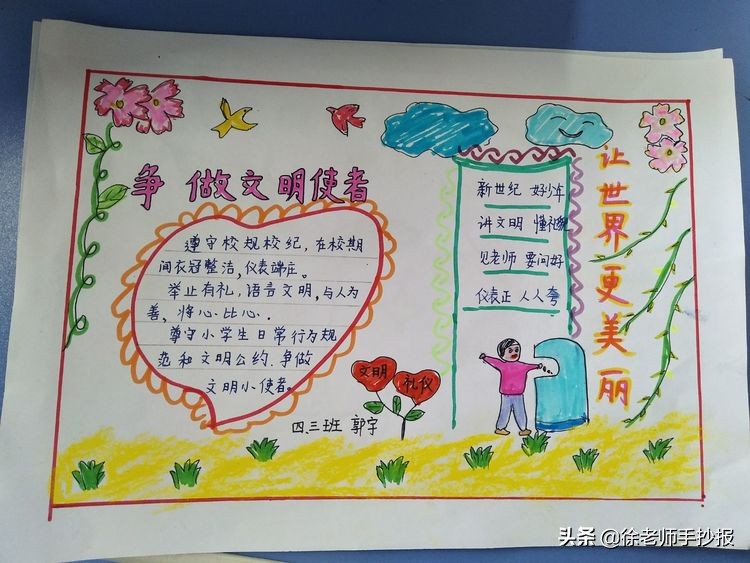 争做文明使者
遵守校规校纪,在校期
间衣冠整洁,仪表端庄。
举止有礼,语言文明,与人为
善,将心比心.
尊守小学生日常行为规
范和文明公约.争做
文明小使者。
文明
礼仪
四.三班 郭宇
新世纪 好少年
讲文明 懂礼貌
见老师 要问好
仪表正 人人夸
让世界更美丽
头条@徐老师手抄报